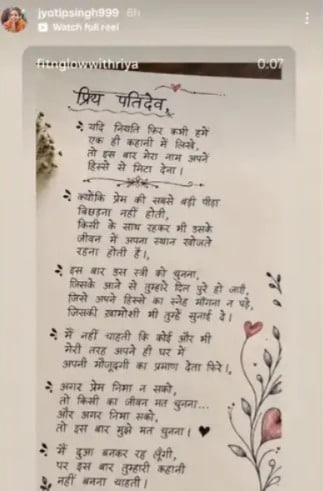 jyotipsingh999 6h
Watch full reel
fitnglowwithriya
0:07
प्रिय पतिदेव,
यदि नियति फिर कभी हमें
एक ही कहानी में लिखे,
तो इस बार मेरा नाम अपने
हिस्से से मिटा देना।
क्योंकि प्रेम की सबसे बड़ी पीड़ा
बिछड़ना नहीं होती,
किसी के साथ रहकर भी उसके
जीवन में अपना स्थान खोजते
रहना होती है।,
इस बार उस स्त्री को चुनना,
जिसके आने से तुम्हारे दिल पुरे हो जाएँ,
जिसे अपने हिस्से का स्नेह माँगना न पड़े,
जिसकी ख़ामोशी भी तुम्हें सुनाई दे।
मैं नहीं चाहती कि कोई और भी
मेरी तरह अपने ही घर में
अपनी मौजूदगी का प्रमाण देता फिरे।,
अगर प्रेम निभा न सको,
तो किसी का जीवन मत चुनना...
और अगर निभा सको,
तो इस बार मुझे मत चुनना।
मैं दुआ बनकर रह लूँगी,
पर इस बार तुम्हारी कहानी
नहीं बनना चाहती।